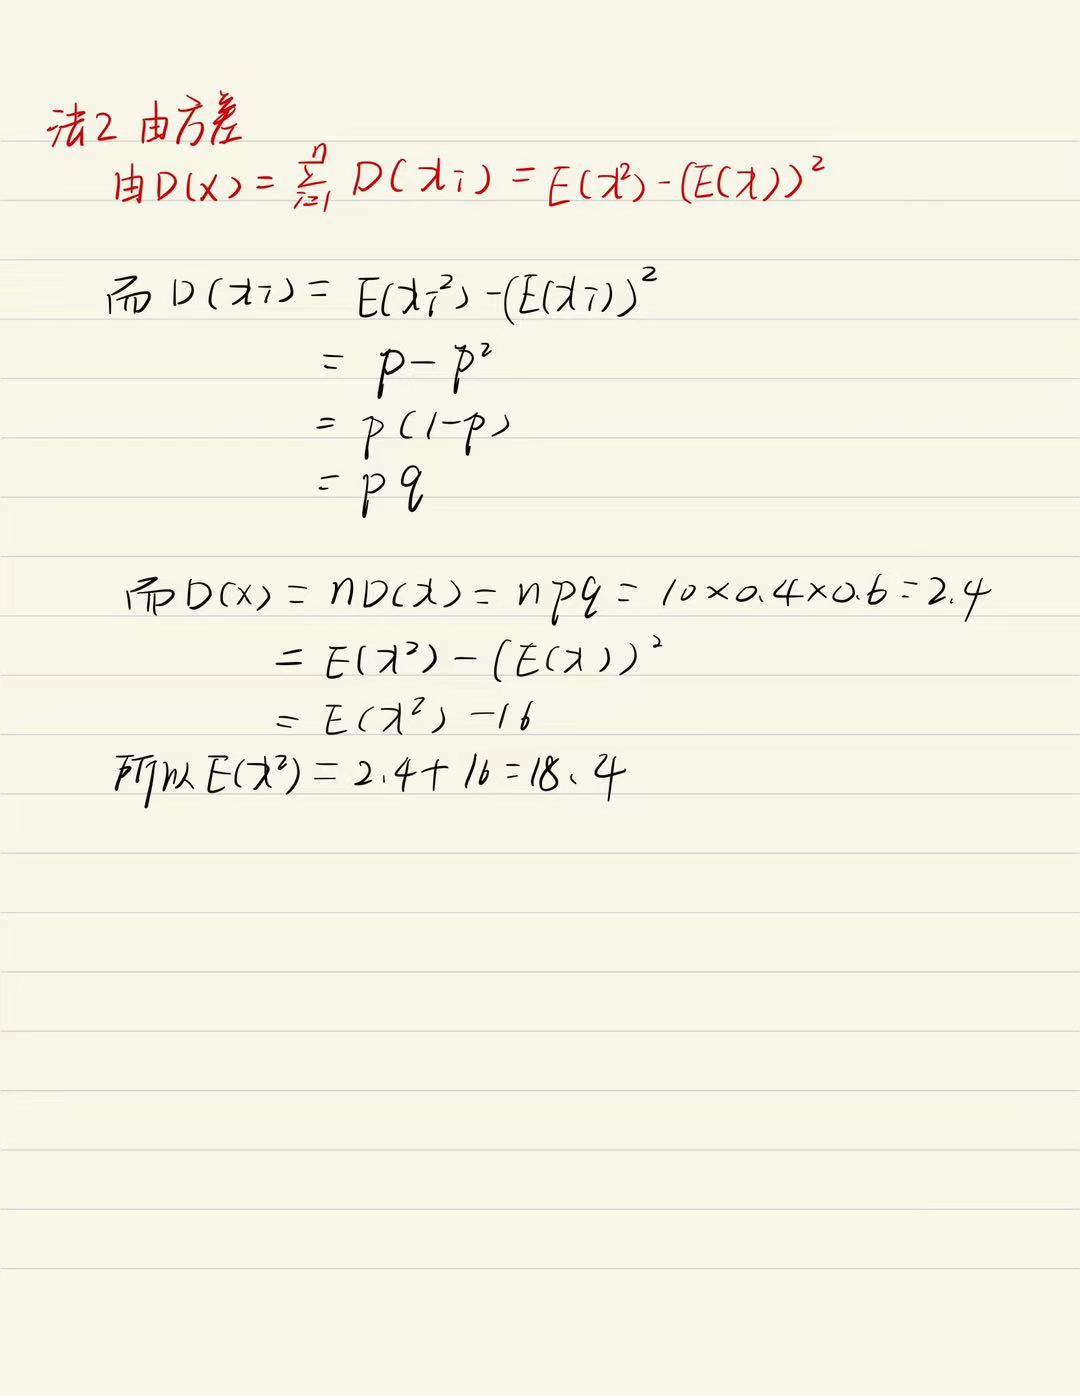 法2 由方差
由D(X)=∑ⁿᵢ₌₁ D(xi)=E(x²)-(E(x))²
而D(xi)=E(xi²)-(E(xi))²
=p-p²
=p(1-p)
=pq
而D(x)=nD(x)=npq=10×0.4×0.6=2.4
=E(x²)-(E(x))²
=E(x²)-16
所以E(x²)=2.4+16=18.4